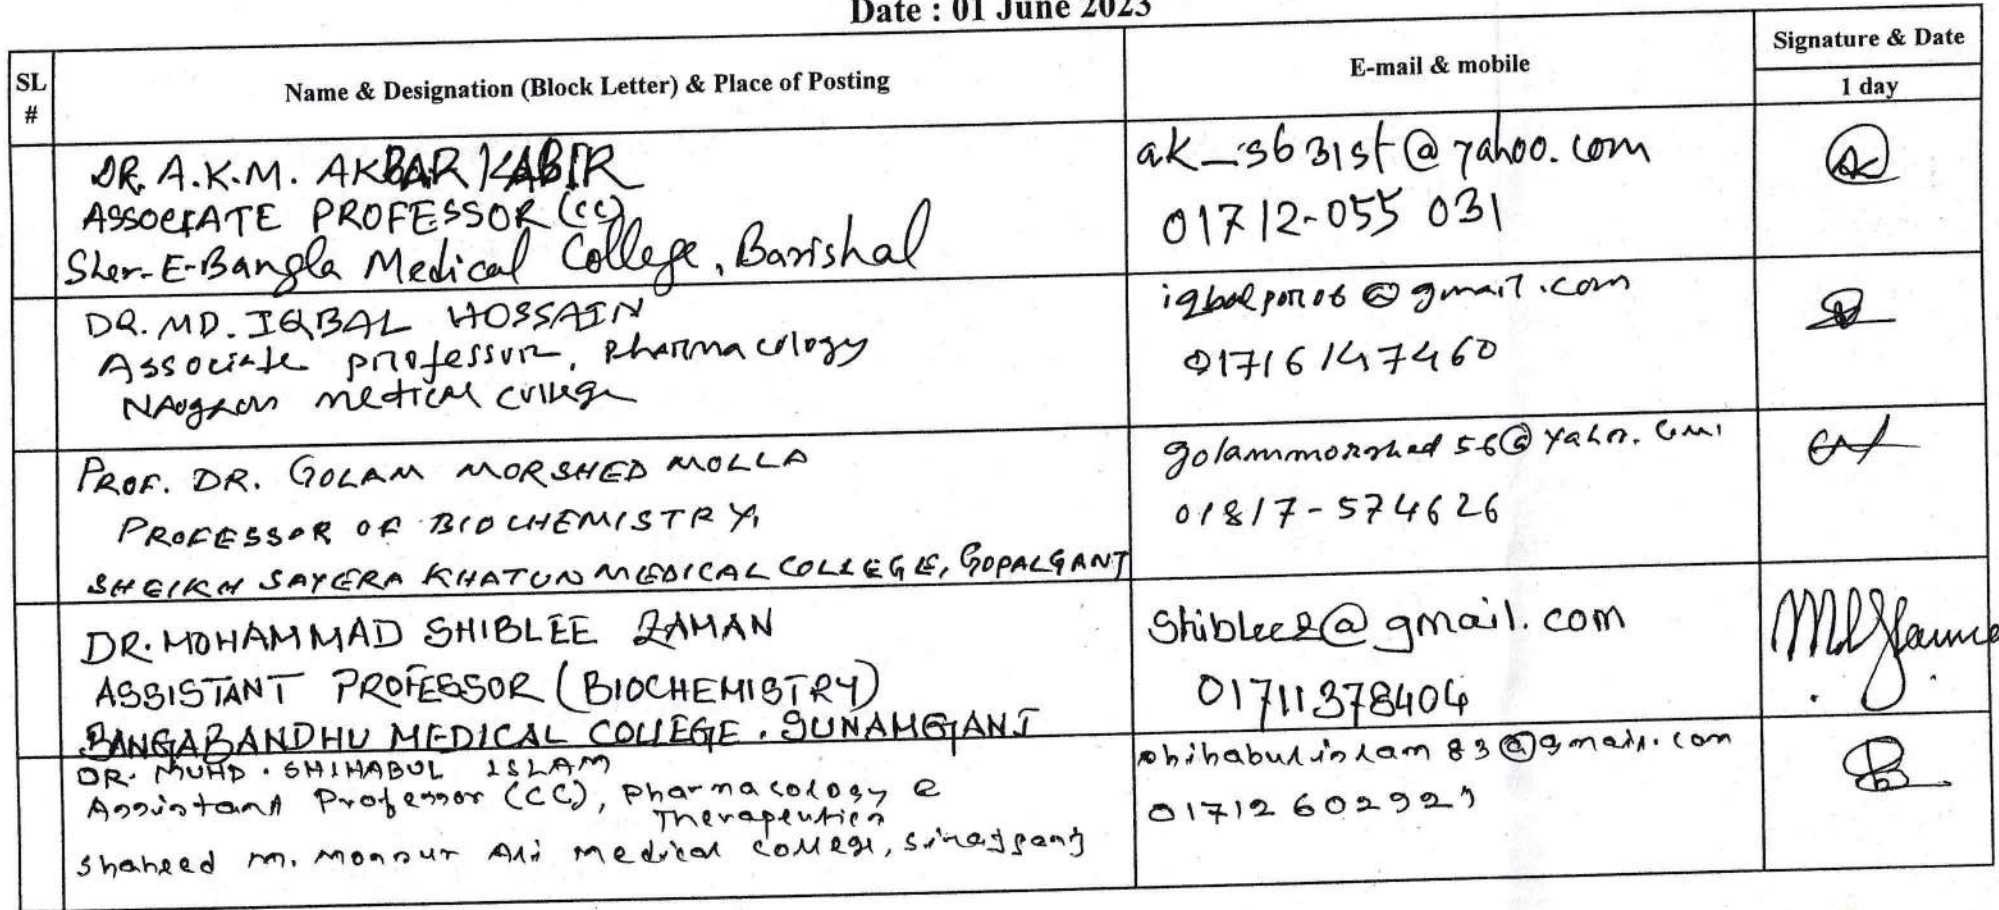 Date : 01 June 2023
SL #
Name & Designation (Block Letter) & Place of Posting
E-mail & mobile
Signature & Date
1 day
DR. A.K.M. AKBAR KABIR
ASSOCIATE PROFESSOR (CC)
Sher-E-Bangla Medical College, Barishal
ak_sb31st@yahoo.com
01712-055 031
DR. MD. IQBAL HOSSAIN
Associate professor, Pharmacology
NAogaon medical college
01716147460
PROF. DR. GOLAM MORSHED MOLLA
PROFESSOR OF BIOCHEMISTRY,
SHEIKH SAYERA KHATUN MEDICAL COLLEGE, GOPALGANJ
golammorshed56@yahoo.com
01817-574626
DR. MOHAMMAD SHIBLEE ZAMAN
ASSISTANT PROFESSOR (BIOCHEMISTRY)
BANGABANDHU MEDICAL COLLEGE. SUNAMGANJ
Shiblee2@gmail.com
01711378404
DR. MUHD. SHIHABUL ISLAM
Assistant Professor (CC), Pharmacology &
Therapeutics
Shaheed M. Monsur Ali Medical College, Sirajganj
shihabulislam83@gmail.com